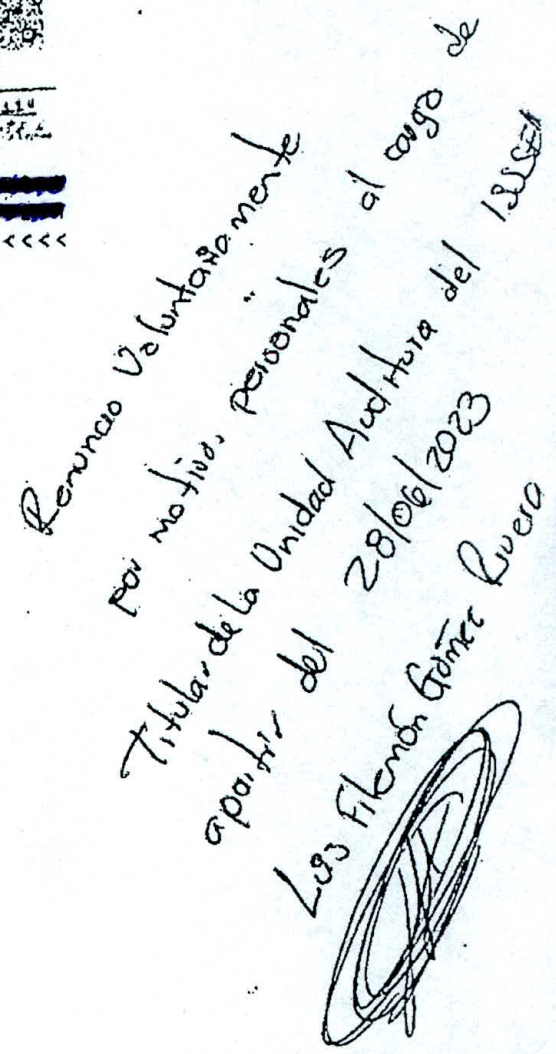 Renuncio Voluntariamente
por motivos personales al cargo de
Titular de la Unidad Auditura del ISSSEA
apartir del 28/06/2023
Luis Filemón Gómez Rivera
<<<<